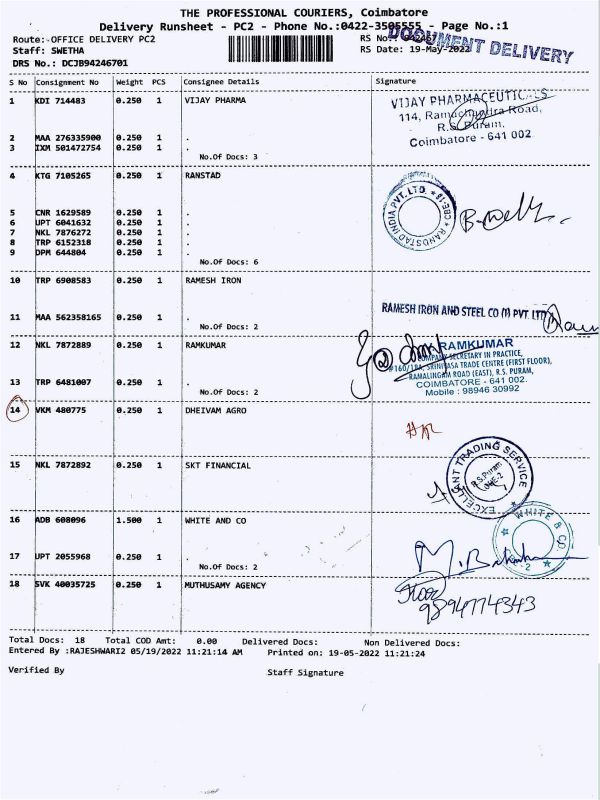 THE PROFESSIONAL COURIERS, Coimbatore
Delivery Runsheet - PC2 - Phone No.:0422-3505555 - Page No.:1
Route:-OFFICE DELIVERY PC2
Staff: SWETHA
DRS No.: DCJB94246701
RS No.:
RS Date: 19-May-2022
DOCUMENT DELIVERY
S No Consignment No Weight PCS Consignee Details Signature
1 KDI 714483 0.250 1 VIJAY PHARMA
VIJAY PHARMACEUTICALS
114, Ramachandra Road,
R.S. Puram,
Coimbatore - 641 002
2 MAA 276335900 0.250 1 .
3 IXM 501472754 0.250 1 .
No.Of Docs: 3
4 KTG 7105265 0.250 1 RANSTAD
RANDSTAD INDIA PVT. LTD. * CBE-18 *
5 CNR 1629589 0.250 1 .
6 UPT 6041632 0.250 1 .
7 NKL 7876272 0.250 1 .
8 TRP 6152318 0.250 1 .
9 DPM 644804 0.250 1 .
No.Of Docs: 6
10 TRP 6908583 0.250 1 RAMESH IRON
RAMESH IRON AND STEEL CO (I) PVT. LTD
11 MAA 562358165 0.250 1 .
No.Of Docs: 2
12 NKL 7872889 0.250 1 RAMKUMAR
RAMKUMAR
COMPANY SECRETARY IN PRACTICE,
SRINIVASA TRADE CENTRE (FIRST FLOOR),
RAMALINGAM ROAD (EAST), R.S. PURAM,
COIMBATORE - 641 002.
Mobile : 98946 30992
13 TRP 6481007 0.250 1 .
No.Of Docs: 2
14 VKM 480775 0.250 1 DHEIVAM AGRO
15 NKL 7872892 0.250 1 SKT FINANCIAL
EXCELLANT TRADING SERVICE
R.S.Puram
16 ADB 608096 1.500 1 WHITE AND CO
WHITE & CO.
17 UPT 2055968 0.250 1 .
No.Of Docs: 2
18 SVK 40035725 0.250 1 MUTHUSAMY AGENCY
9894774343
Total Docs: 18 Total COD Amt: 0.00 Delivered Docs: Non Delivered Docs:
Entered By :RAJESHWARI2 05/19/2022 11:21:14 AM Printed on: 19-05-2022 11:21:24
Verified By Staff Signature